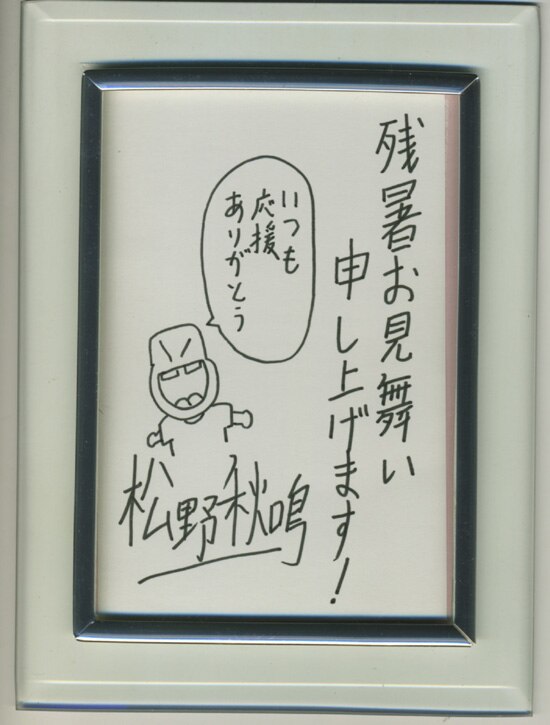 残暑お見舞い
申し上げます!
いつも
応援
ありがとう
松野秋鳴